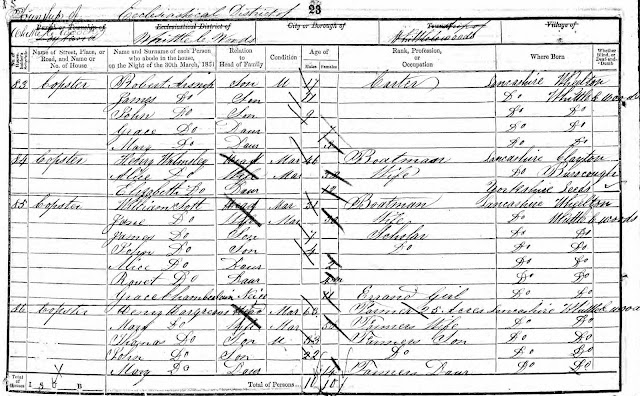 85
Township of Ecclesiastical District of 33
Ecclesiastical District of City or Borough of Village of
Whittle le Woods Whittle le woods
Name of Street, Place, or Road, and Name or No. of House
Name and Surname of each Person who abode in the house, on the Night of the 30th March, 1851
Relation to Head of Family
Condition
Age of
Males Females
Rank, Profession, or Occupation
Where Born
Whether Blind, or Deaf-and-Dumb
83 Copster Robert Son U 17 Carter Lancashire
James Do Son 11 Do Whittle le woods
John Do Son 9 Do Do
Grace Do Daur 7 Do Do
Mary Do Daur Do Do
84 Copster Henry Walmsley Head Mar 46 Boatman Lancashire Clayton
Alice Do Wife Mar Wife Do Burscough
Elizabeth Do Daur Yorkshire Leeds
85 Copster William Head Mar 31 Boatman Lancashire
Jane Do Wife Mar Wife Do Whittle le woods
James Do Son 7 Scholar Do Do
John Do Son 4 Do Do Do
Alice Do Daur 2 Do Do
Do Daur Do Do
Grace Chamberlain 11 Errand Girl Do Do
86 Copster Henry Hargreaves Head Mar 60 Farmer 25 Acres Lancashire Whittle le woods
Mary Do Wife Mar Farmers Wife Do Do
Thomas Do Son U 23 Farmers Son Do Do
John Do Son 22 Do Do Do
Mary Do Daur 14 Farmers Daur Do Do
Total of Houses I B Total of Persons 10 10